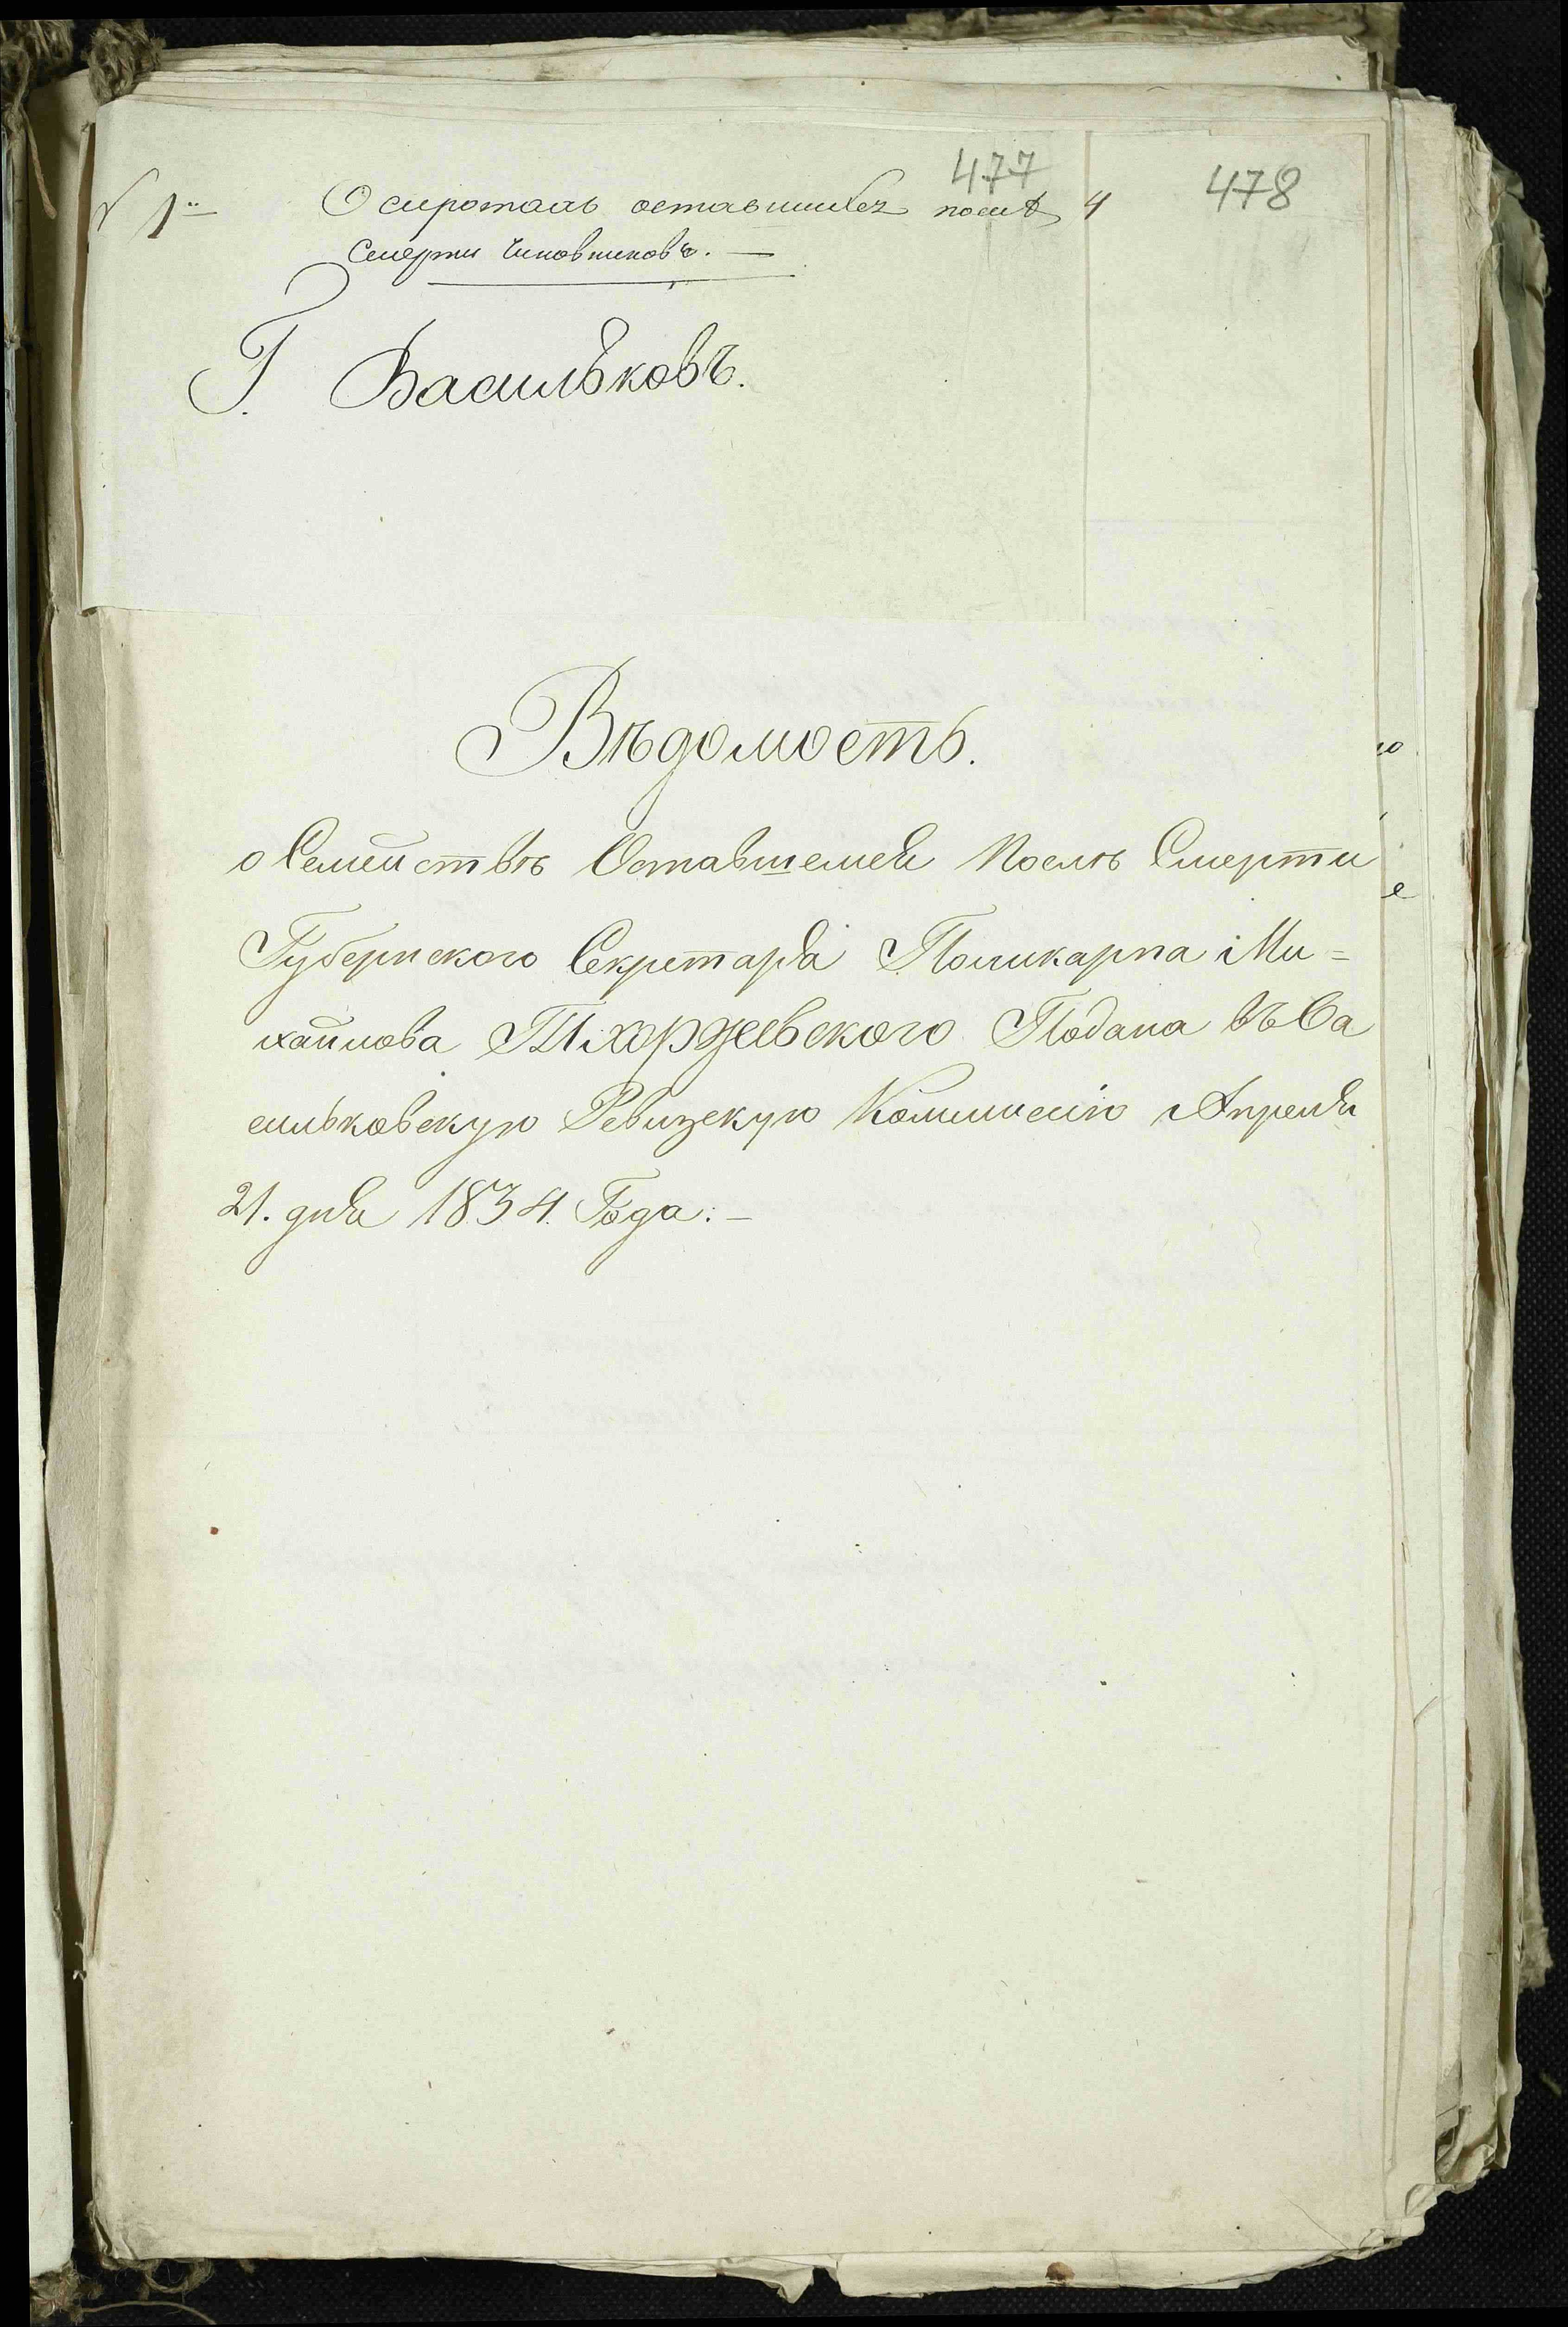 477
478
№ 1й
О сиротахъ оставшихся послѣ
4
смерти чиновниковъ. —
Г. Васильковъ.
Вѣдомость.
о Семействѣ Оставшемся Послѣ Смерти
Губернского Секретаря Поликарпа Ми=
хайлова Пхоржевского Подана въ Ва
сильковскую Ревизскую Коммисію Апреля
21. дня 1834. Года. —